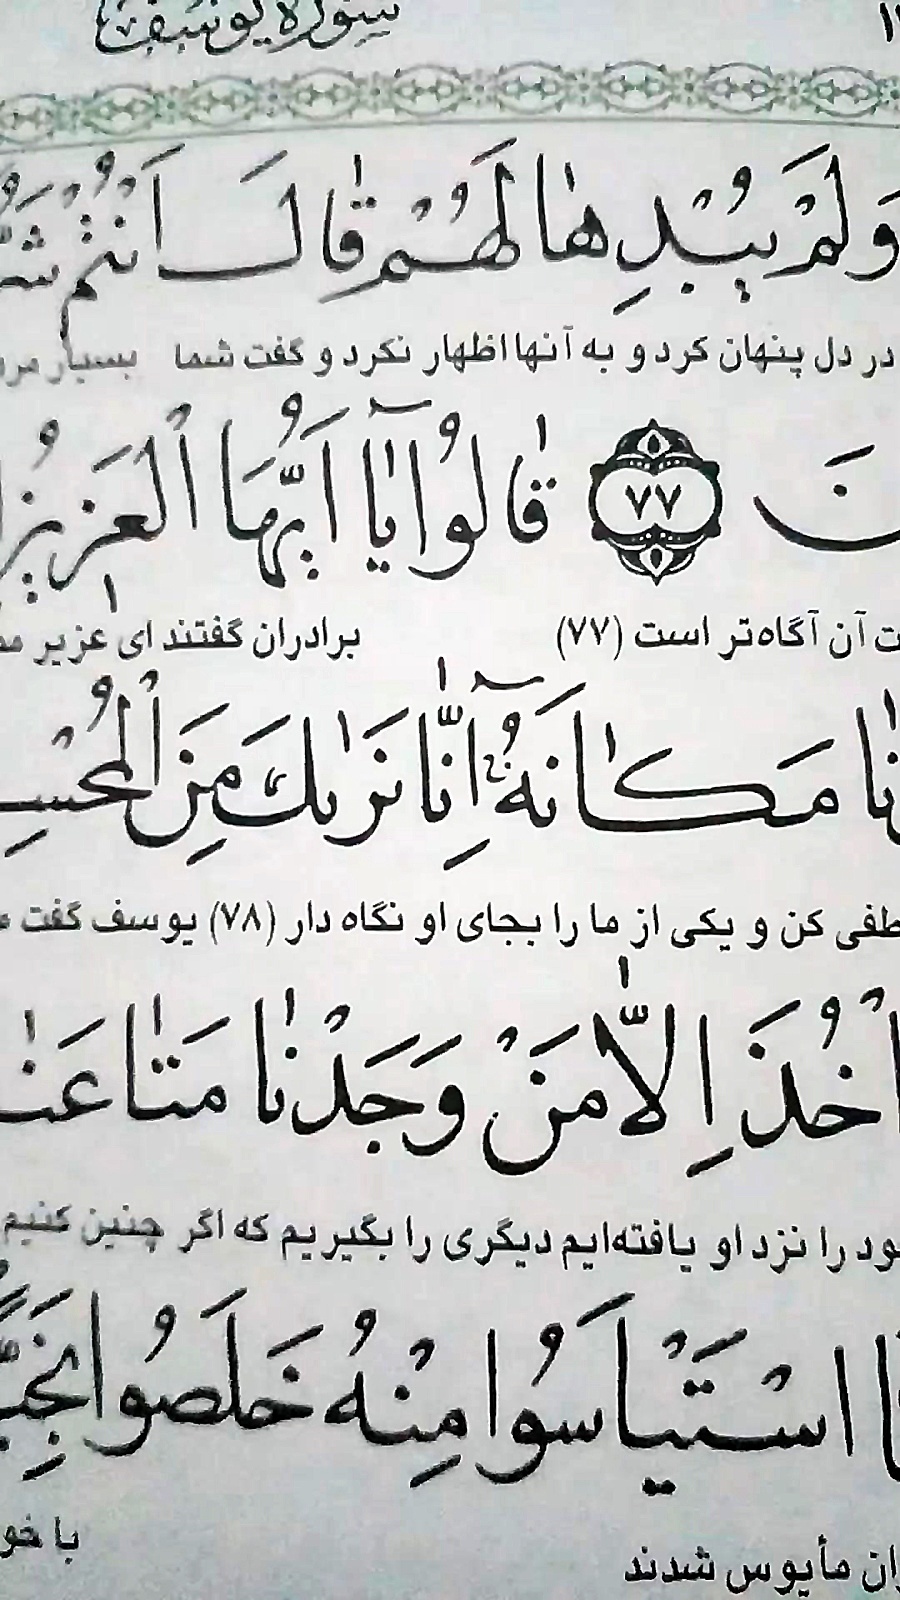 سورة يوسف
وَلَمْ يُبْدِهٰا لَهُمْ قٰالَ اَنْتُمْ
در دل پنهان کرد و به آنها اظهار نکرد و گفت شما بسیار
نَ ﴿٧٧﴾ قٰالُوا يٰٓا اَيُّهَا الْعَزيزُ
آن آگاه‌تر است (۷۷) برادران گفتند ای عزیر
نٰا مَكٰانَهُ اِنّٰا نَرٰيكَ مِنَ الْمُحْسِ
طفی کن و یکی از ما را بجای او نگاه دار (۷۸) یوسف گفت
اْخُذَ اِلاّٰ مَنْ وَجَدْنٰا مَتٰاعَنٰا
ود را نزد او یافته‌ایم دیگری را بگیریم که اگر چنین کنیم
اسْتَيْاَسُوا مِنْهُ خَلَصُوا نَجِيًّ
ان مأیوس شدند با خو